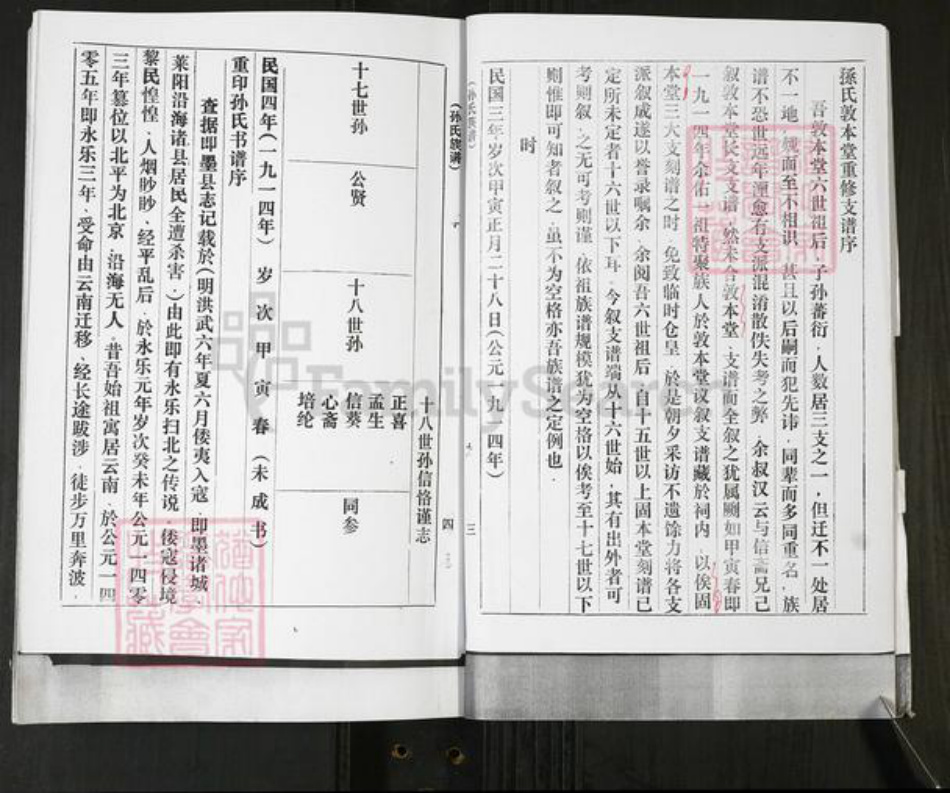 孫氏敦本堂重修支谱序
吾敦本堂六世祖后，子孙蕃衍，人数居三支之一，但迁不一处居
不一地，觌面至不相识，甚且以后嗣而犯先讳，同辈而多同重名，族
谱不恐世远年湮愈有支派混淆散佚失考之弊，余叔汉云与信斋兄己
叙敦本堂长支支谱，然未合敦本堂，支谱而全叙之犹属阙如甲寅春即
一九一四年余佑一祖特聚族人於敦本堂议叙支谱藏於祠内，以俟固
本堂三大支刻谱之时，免致临时仓皇，於是朝夕采访不遗馀力将各支
派叙成遂以誉录嘱余，余阅吾六世祖后，自十五世以上固本堂刻谱已
定所未定者十六世以下耳，今叙支谱端从十六世始，其有出外者可
考则叙，之无可考则谨，依祖族谱规模犹为空格以俟考至十七世以下
则惟即可知者叙之，虽不为空格亦吾族谱之定例也．
时
民国三年岁次甲寅正月二十八日(公元一九一四年)
(孙氏族谱)
三
(孙氏族谱)
四
十八世孙信恪谨志
十七世孙 公贤 十八世孙 正喜 孟生 信葵 心斋 培纶 同参
民国四年(一九一四年) 岁次甲寅春(未成书)
重印孙氏书谱序
查据即墨县志记载於(明洪武六年夏六月倭夷入寇，即墨诸城，
莱阳沿海诸县居民全遭杀害．)由此即有永乐扫北之传说．倭寇侵境
黎民惶惶，人烟眇眇，经平乱后，於永乐元年岁次癸未年公元一四零
三年篡位以北平为北京，沿海无人，昔吾始祖寓居云南，於公元一四
零五年即永乐三年，受命由云南迁移，经长途跋涉，徒步万里奔波，
FamilySearch